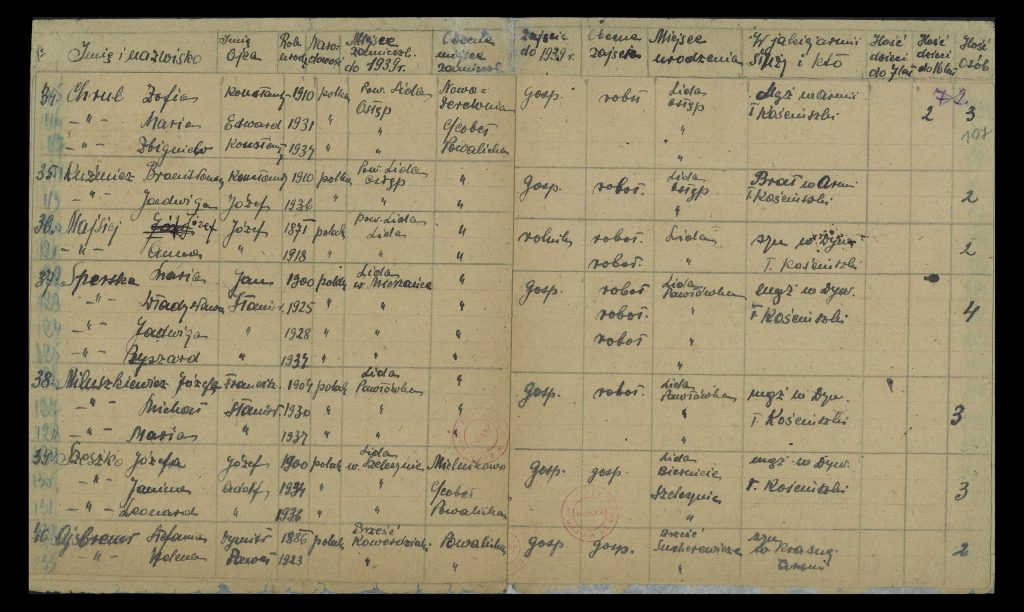 Imię i nazwisko Imię Ojca Rok urodz. Narodowość Miejsce zamieszk. do 1939 r. Obecne miejsce zamieszk. Zajęcie do 1939 r. Obecne zajęcie Miejsce urodzenia W jakiej armii służy i kto Ilość dzieci do 7 lat Ilość dzieci do 16 lat Ilość osób
72
34. Chrul Zofia Konstanty 1910 polka Pow. Lida Ostęp Nowo= gosp. robot Lida Ostęp Mąż w Armii T. Kościuszki 2 3
-"- Maria Edward 1931 " "
107
-"- Zbigniew Konstanty 1937 " " Powalicha "
35. Kuźmicz Bronisława Konstanty 1910 polka Pow. Lida Ostęp " gosp. robot Lida Ostęp Brat w Armii T. Kościuszki 2
-"- Jadwiga Józef 1936 " " " "
36. Józef Józef 1871 polak Pow. Lida Lida " rolnik robot. Lida syn w Dyw. T. Kościuszki 2
-"- Anna " 1918 " " " robot. "
37. Sperska Maria Jan 1900 polka Lida " gosp. robot Lida Pawłówka mąż w Dyw. T. Kościuszki 4
-"- Władysława Stanisł. 1925 " robot. "
-"- Jadwiga " 1928 " robot "
-"- Ryszard " 1934 "
38. Miluszkiewicz Józefa Francisz. 1904 polak Lida Pawłówka " gosp. robot. Lida Pawłówka mąż w Dyw. T. Kościuszki 3
-"- Michał Stanisł. 1930 " " " "
-"- Maria " 1937 " " " "
39. Szeszko Józefa Józef 1900 polak Lida Mielnikowo gosp. gosp. Lida mąż w Dyw. T. Kościuszki 3
-"- Janina Adolf 1934 " "
-"- Leonard " 1936 " " Powalicha "
40. Stefania 1886 polak Brześć Powalicha gosp. gosp. syn w Krasnej armii 2
-"- Paweł 1923 " " "